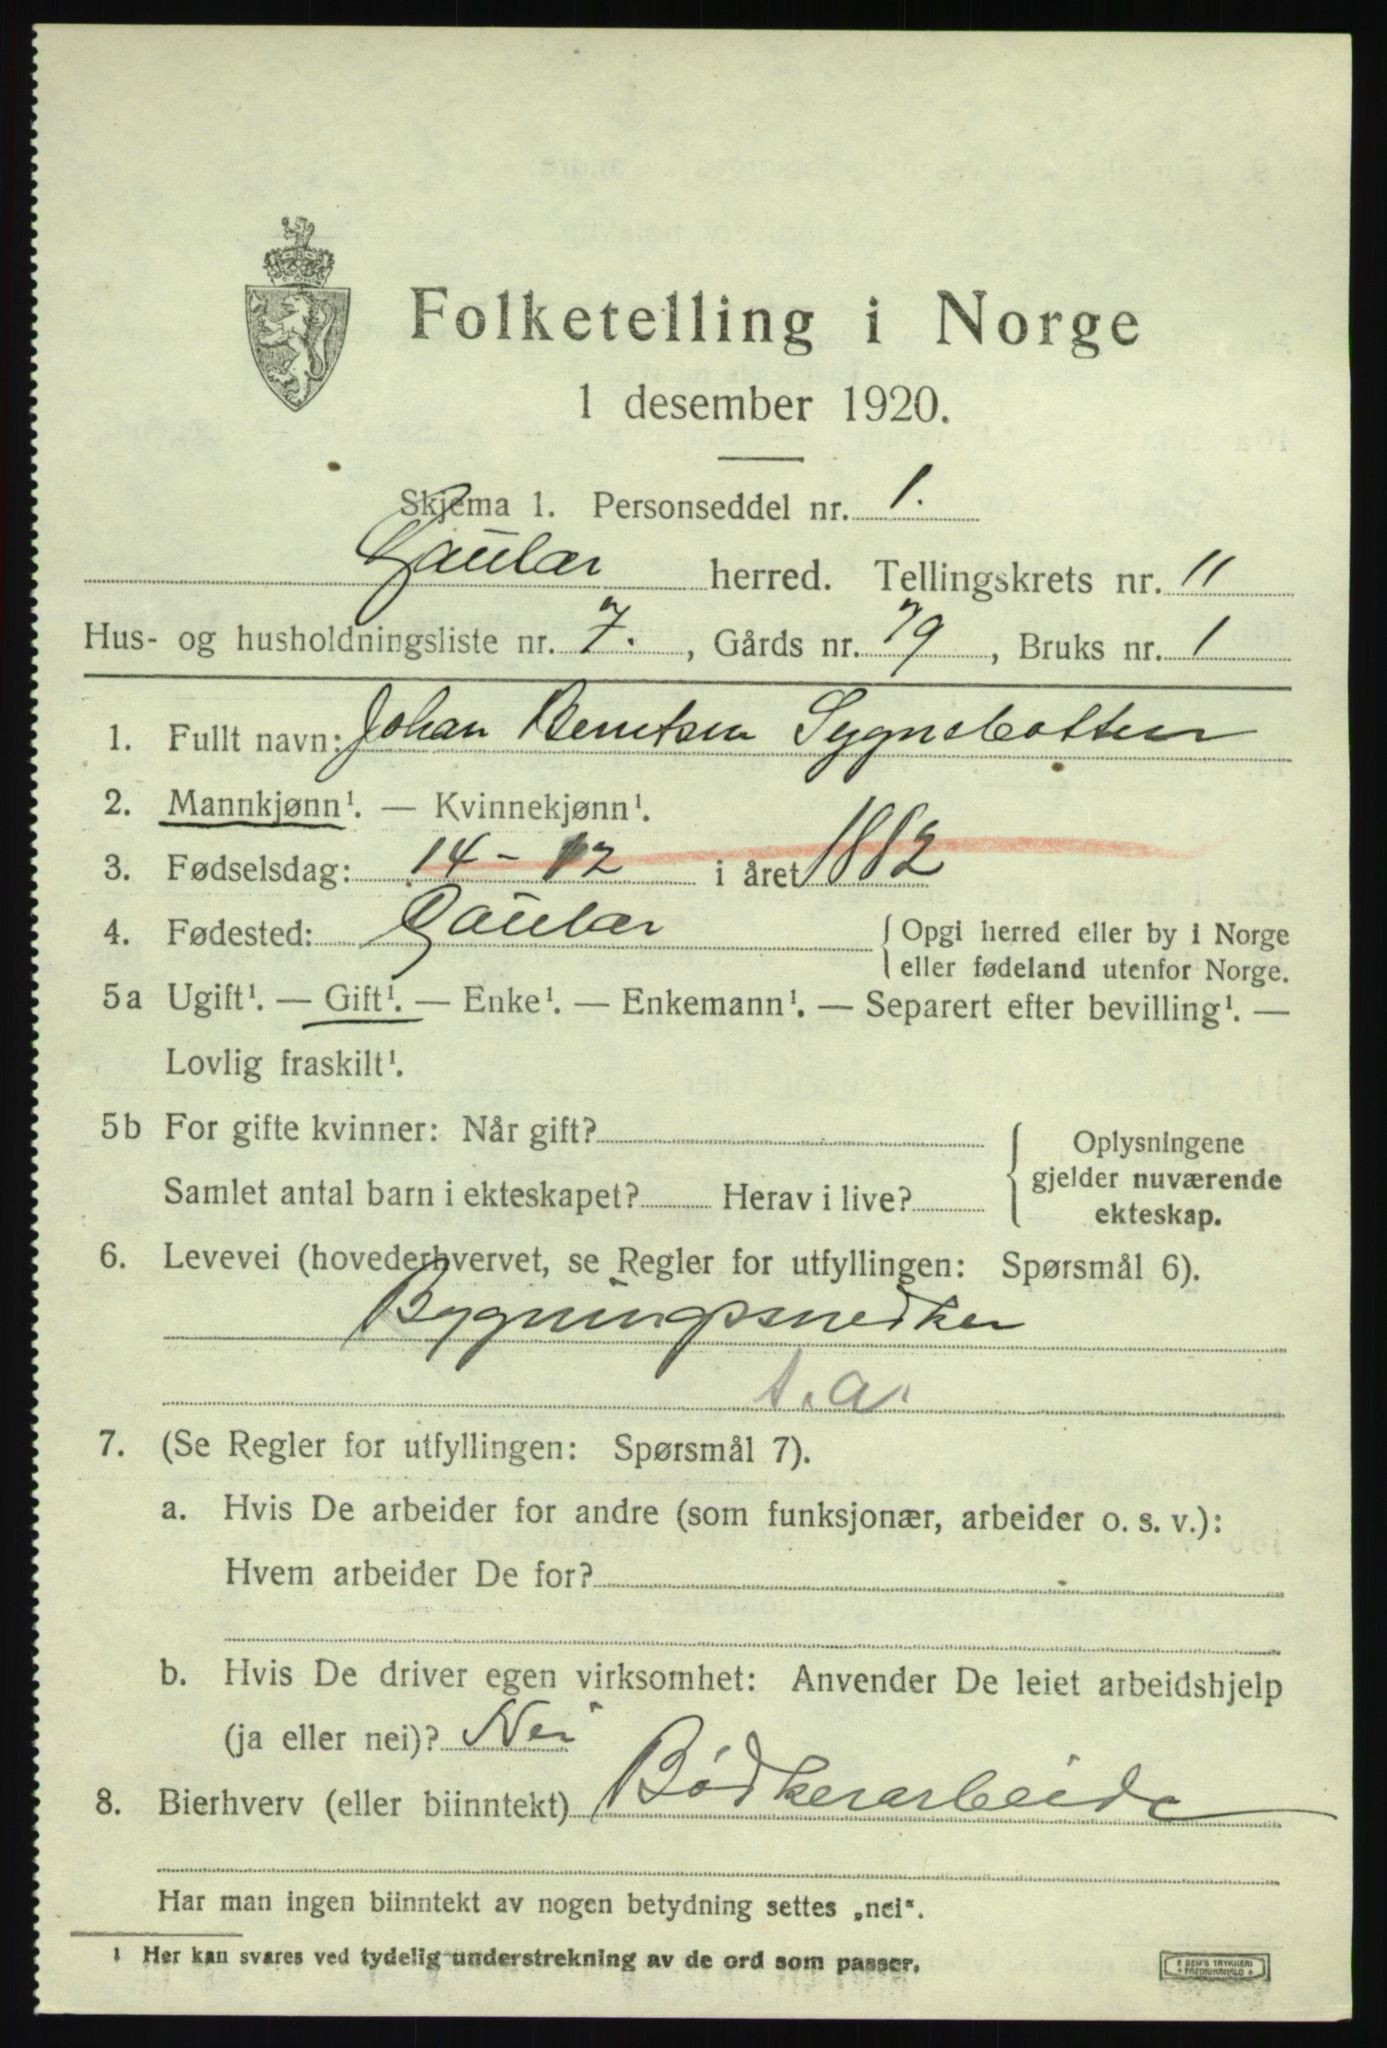 Folketelling i Norge
1 desember 1920.
Skjema 1. Personseddel nr. 1.
Gaular herred. Tellingskrets nr. 11
Hus- og husholdningsliste nr. 7. , Gårds nr. 79 , Bruks nr. 1
1. Fullt navn: Johan Berntsen Sygnebotten
2. Mannkjønn¹. — Kvinnekjønn¹.
3. Fødselsdag: 14 - 12 i året 1882
4. Fødested: Gaular { Opgi herred eller by i Norge
eller fødeland utenfor Norge.
5a Ugift¹. — Gift¹. — Enke¹. — Enkemann¹. — Separert efter bevilling¹. —
Lovlig fraskilt¹.
5b For gifte kvinner: Når gift? { Oplysningene
gjelder nuværende
Samlet antal barn i ekteskapet? Herav i live? ekteskap.
6. Levevei (hovederhvervet, se Regler for utfyllingen: Spørsmål 6).
Bygningssnedker
s.a.
7. (Se Regler for utfyllingen: Spørsmål 7).
a. Hvis De arbeider for andre (som funksjonær, arbeider o. s. v.):
Hvem arbeider De for?
b. Hvis De driver egen virksomhet: Anvender De leiet arbeidshjelp
(ja eller nei)? Nei
8. Bierhverv (eller biinntekt) Bödkerarbeide
Har man ingen biinntekt av nogen betydning settes „nei“.
1 Her kan svares ved tydelig understrekning av de ord som passer.